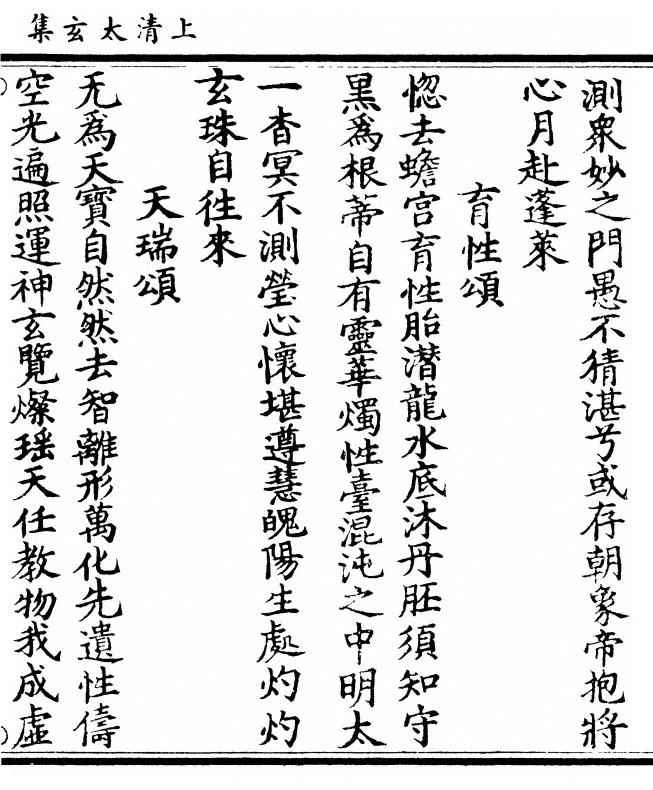 上清太玄集
測衆妙之門愚不猜湛兮或存朝象帝抱將
心月赴蓬萊
育性頌
惚去蟾宮育性胎潛龍水底沐丹胚須知守
黑爲根蔕自有靈華燭性臺混沌之中明太
一杳冥不測瑩心懷堪遵慧魄陽生處灼灼
玄珠自徃來
天瑞頌
无爲天寶自然然去智離形萬化先遺性儔
空光遍照運神玄覽燦瑶天任教物我成虛